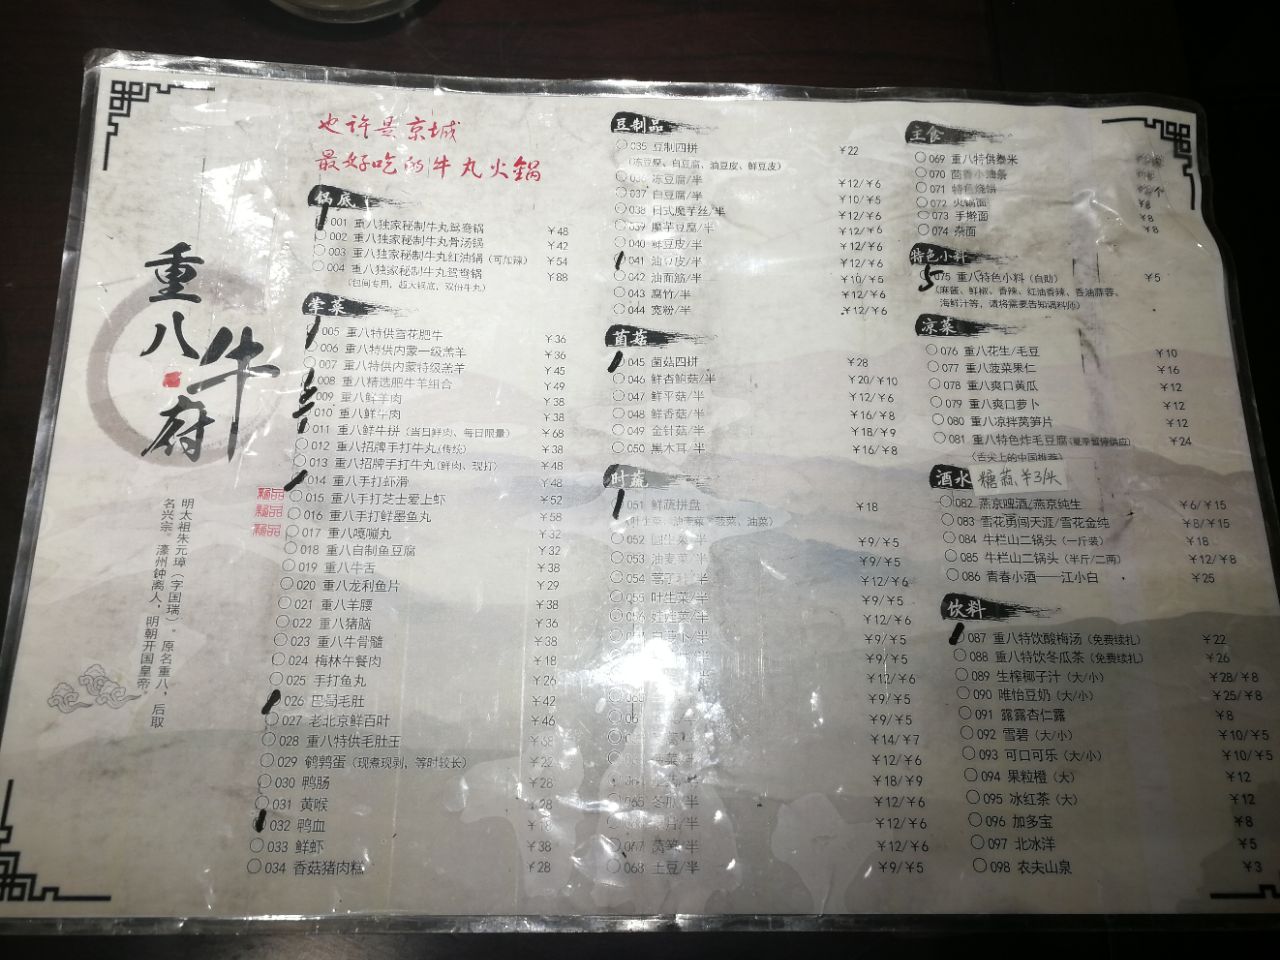 也许是京城
最好吃的牛丸火锅
重八牛府
明太祖朱元璋（字国瑞），原名重八，后取
名兴宗。濠州钟离人，明朝开国皇帝。
锅底
001 重八独家秘制牛丸鸳鸯锅 ¥48
002 重八独家秘制牛丸骨汤锅 ¥42
003 重八独家秘制牛丸红油锅（可加辣） ¥54
004 重八独家秘制牛丸鸳鸯锅 ¥88
（包间专用，超大锅底，双份牛丸）
荤菜
005 重八特供雪花肥牛 ¥36
006 重八特供内蒙一级羔羊 ¥36
007 重八特供内蒙特级羔羊 ¥45
008 重八精选肥牛羊组合 ¥49
009 重八鲜羊肉 ¥38
010 重八鲜牛肉 ¥38
011 重八鲜牛拼（当日鲜肉、每日限量） ¥68
012 重八招牌手打牛丸（传统） ¥38
013 重八招牌手打牛丸（鲜肉、现打） ¥48
014 重八手打虾滑 ¥48
015 重八手打芝士爱上虾 ¥52
016 重八手打鲜墨鱼丸 ¥58
017 重八嘎嘣丸 ¥32
018 重八自制鱼豆腐 ¥32
019 重八牛舌 ¥38
020 重八龙利鱼片 ¥29
021 重八羊腰 ¥38
022 重八猪脑 ¥36
023 重八牛骨髓 ¥38
024 梅林午餐肉 ¥18
025 手打鱼丸 ¥26
026 巴蜀毛肚 ¥42
027 老北京鲜百叶 ¥46
028 重八特供毛肚王 ¥68
029 鹌鹑蛋（现煮现剥，等时较长） ¥22
030 鸭肠 ¥28
031 黄喉 ¥28
032 鸭血
033 鲜虾 ¥38
034 香菇猪肉糕 ¥28
豆制品
035 豆制四拼 ¥22
（冻豆腐、白豆腐、油豆皮、鲜豆皮）
036 冻豆腐/半 ¥12/¥6
037 白豆腐/半 ¥10/¥5
038 日式魔芋丝/半 ¥12/¥6
039 魔芋豆腐/半 ¥12/¥6
040 鲜豆皮/半 ¥12/¥6
041 油豆皮/半 ¥12/¥6
042 油面筋/半 ¥10/¥5
043 腐竹/半 ¥12/¥6
044 宽粉/半 ¥12/¥6
菌菇
045 菌菇四拼 ¥28
046 鲜杏鲍菇/半 ¥20/¥10
047 鲜平菇/半 ¥12/¥6
048 鲜香菇/半 ¥16/¥8
049 金针菇/半 ¥18/¥9
050 黑木耳/半 ¥16/¥8
时蔬
051 鲜蔬拼盘 ¥18
（叶生菜、油麦菜、菠菜、油菜）
052 /半 ¥9/¥5
053 油麦菜/半 ¥9/¥5
054 /半 ¥12/¥6
055 叶生菜/半 ¥9/¥5
056 娃娃菜/半 ¥12/¥6
/半 ¥9/¥5
¥9/¥5
¥12/¥6
¥9/¥5
¥9/¥5
¥14/¥7
¥12/¥6
¥18/¥9
065 冬瓜/半 ¥12/¥6
/半 ¥12/¥6
067 莴笋/半 ¥12/¥6
068 土豆/半 ¥9/¥5
主食
069 重八特供黍米
070 茴香小油条
071 特色烧饼
072 火锅面 ¥8
073 手擀面 ¥8
074 杂面 ¥8
特色小料
5
075 重八特色小料（自助） ¥5
（麻酱、鲜椒、香辣、红油香辣、香油蒜蓉、
海鲜汁等，请将需要告知调料师）
凉菜
076 重八花生/毛豆 ¥10
077 重八菠菜果仁 ¥16
078 重八爽口黄瓜 ¥12
079 重八爽口萝卜 ¥12
080 重八凉拌莴笋片 ¥12
081 重八特色炸毛豆腐 ¥24
（舌尖上的中国推荐）
酒水 糖蒜 ¥3/头
082 燕京啤酒/燕京纯生 ¥6/¥15
083 雪花勇闯天涯/雪花金纯 ¥8/¥15
084 牛栏山二锅头（一斤装） ¥18
085 牛栏山二锅头（半斤/二两） ¥12/¥8
086 青春小酒——江小白 ¥25
饮料
087 重八特饮酸梅汤（免费续扎） ¥22
088 重八特饮冬瓜茶（免费续扎） ¥26
089 生榨椰子汁（大/小） ¥28/¥8
090 唯怡豆奶（大/小） ¥25/¥8
091 露露杏仁露 ¥8
092 雪碧（大/小） ¥10/¥5
093 可口可乐（大/小） ¥10/¥5
094 果粒橙（大） ¥12
095 冰红茶（大） ¥12
096 加多宝 ¥8
097 北冰洋 ¥5
098 农夫山泉 ¥3